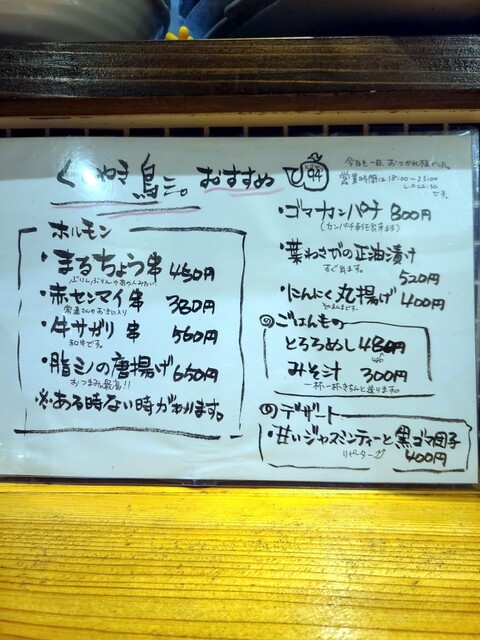 くしやき鳥三。おすすめ
今日も一日、おつかれ様でした。
営業時間は18:00〜23:00
L.O22:30
です。
ホルモン
・まるちょう串 450円
ぷりんぷりんのあの人みたい
・赤センマイ串 380円
常連さんのお気に入り
・牛サガリ串 560円
和牛です。
・脂ミの唐揚げ 650円
おつまみに最高!!
※ある時ない時がわります。
・ゴマカンパチ 800円
(カンパチ刺も出来ます)
・葉わさびの正油漬け
すぐ出ます。
520円
・にんにく丸揚げ 400円
ごはんもの
とろろめし 480円
みそ汁 300円
一杯一杯きちんと塗ります。
デザート
・甘いジャズミンティーと黒ゴマ団子
リピーター
400円